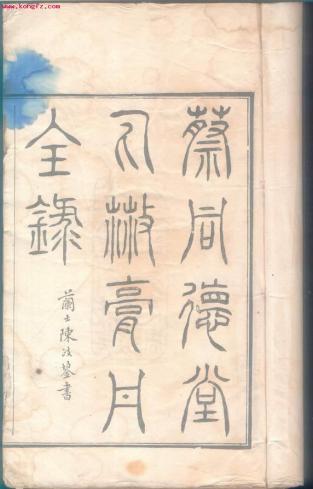 www.kongfz.com
蔡同德堂
丸散膏丹
全錄
蘭士陳書